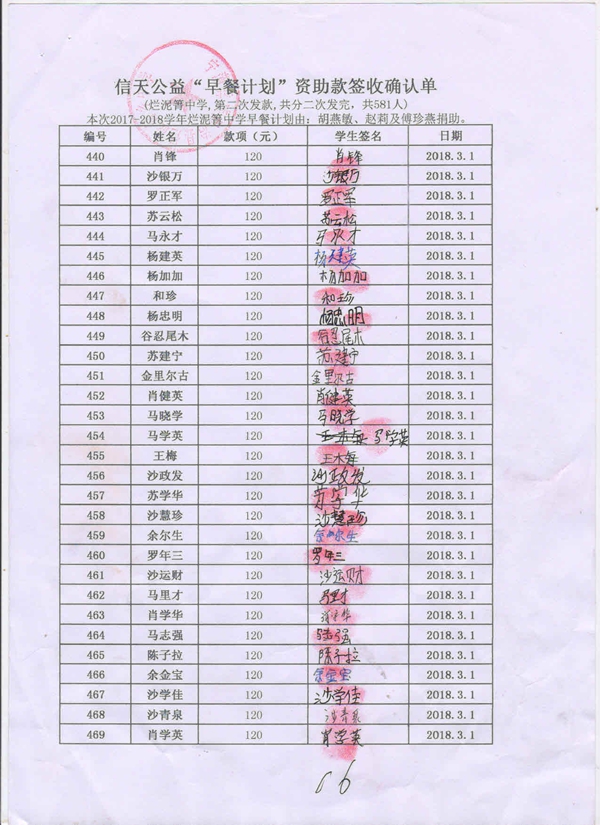 信天公益“早餐计划”资助款签收确认单
(烂泥箐中学,第二次发款,共分二次发完，共581人)
本次2017-2018学年烂泥箐中学早餐计划由：胡燕敏、赵莉及傅珍燕捐助。
编号 姓名 款项（元） 学生签名 日期
440 肖锋 120 肖锋 2018.3.1
441 沙银万 120 沙银万 2018.3.1
442 罗正军 120 罗正军 2018.3.1
443 苏云松 120 苏云松 2018.3.1
444 马永才 120 马永才 2018.3.1
445 杨建英 120 杨建英 2018.3.1
446 杨加加 120 杨加加 2018.3.1
447 和珍 120 和珍 2018.3.1
448 杨忠明 120 杨忠明 2018.3.1
449 谷忍尾木 120 谷忍尾木 2018.3.1
450 苏建宁 120 苏建宁 2018.3.1
451 金里尔古 120 金里尔古 2018.3.1
452 肖健英 120 肖健英 2018.3.1
453 马晓学 120 马晓学 2018.3.1
454 马学英 120 马学英 2018.3.1
455 王梅 120 王梅 2018.3.1
456 沙政发 120 沙政发 2018.3.1
457 苏学华 120 苏学华 2018.3.1
458 沙慧珍 120 沙慧珍 2018.3.1
459 余尔生 120 余尔生 2018.3.1
460 罗年三 120 罗年三 2018.3.1
461 沙运财 120 沙运财 2018.3.1
462 马里才 120 马里才 2018.3.1
463 肖学华 120 肖学华 2018.3.1
464 马志强 120 2018.3.1
465 陈子拉 120 陈子拉 2018.3.1
466 余金宝 120 余金宝 2018.3.1
467 沙学佳 120 沙学佳 2018.3.1
468 沙青泉 120 沙青泉 2018.3.1
469 肖学英 120 肖学英 2018.3.1